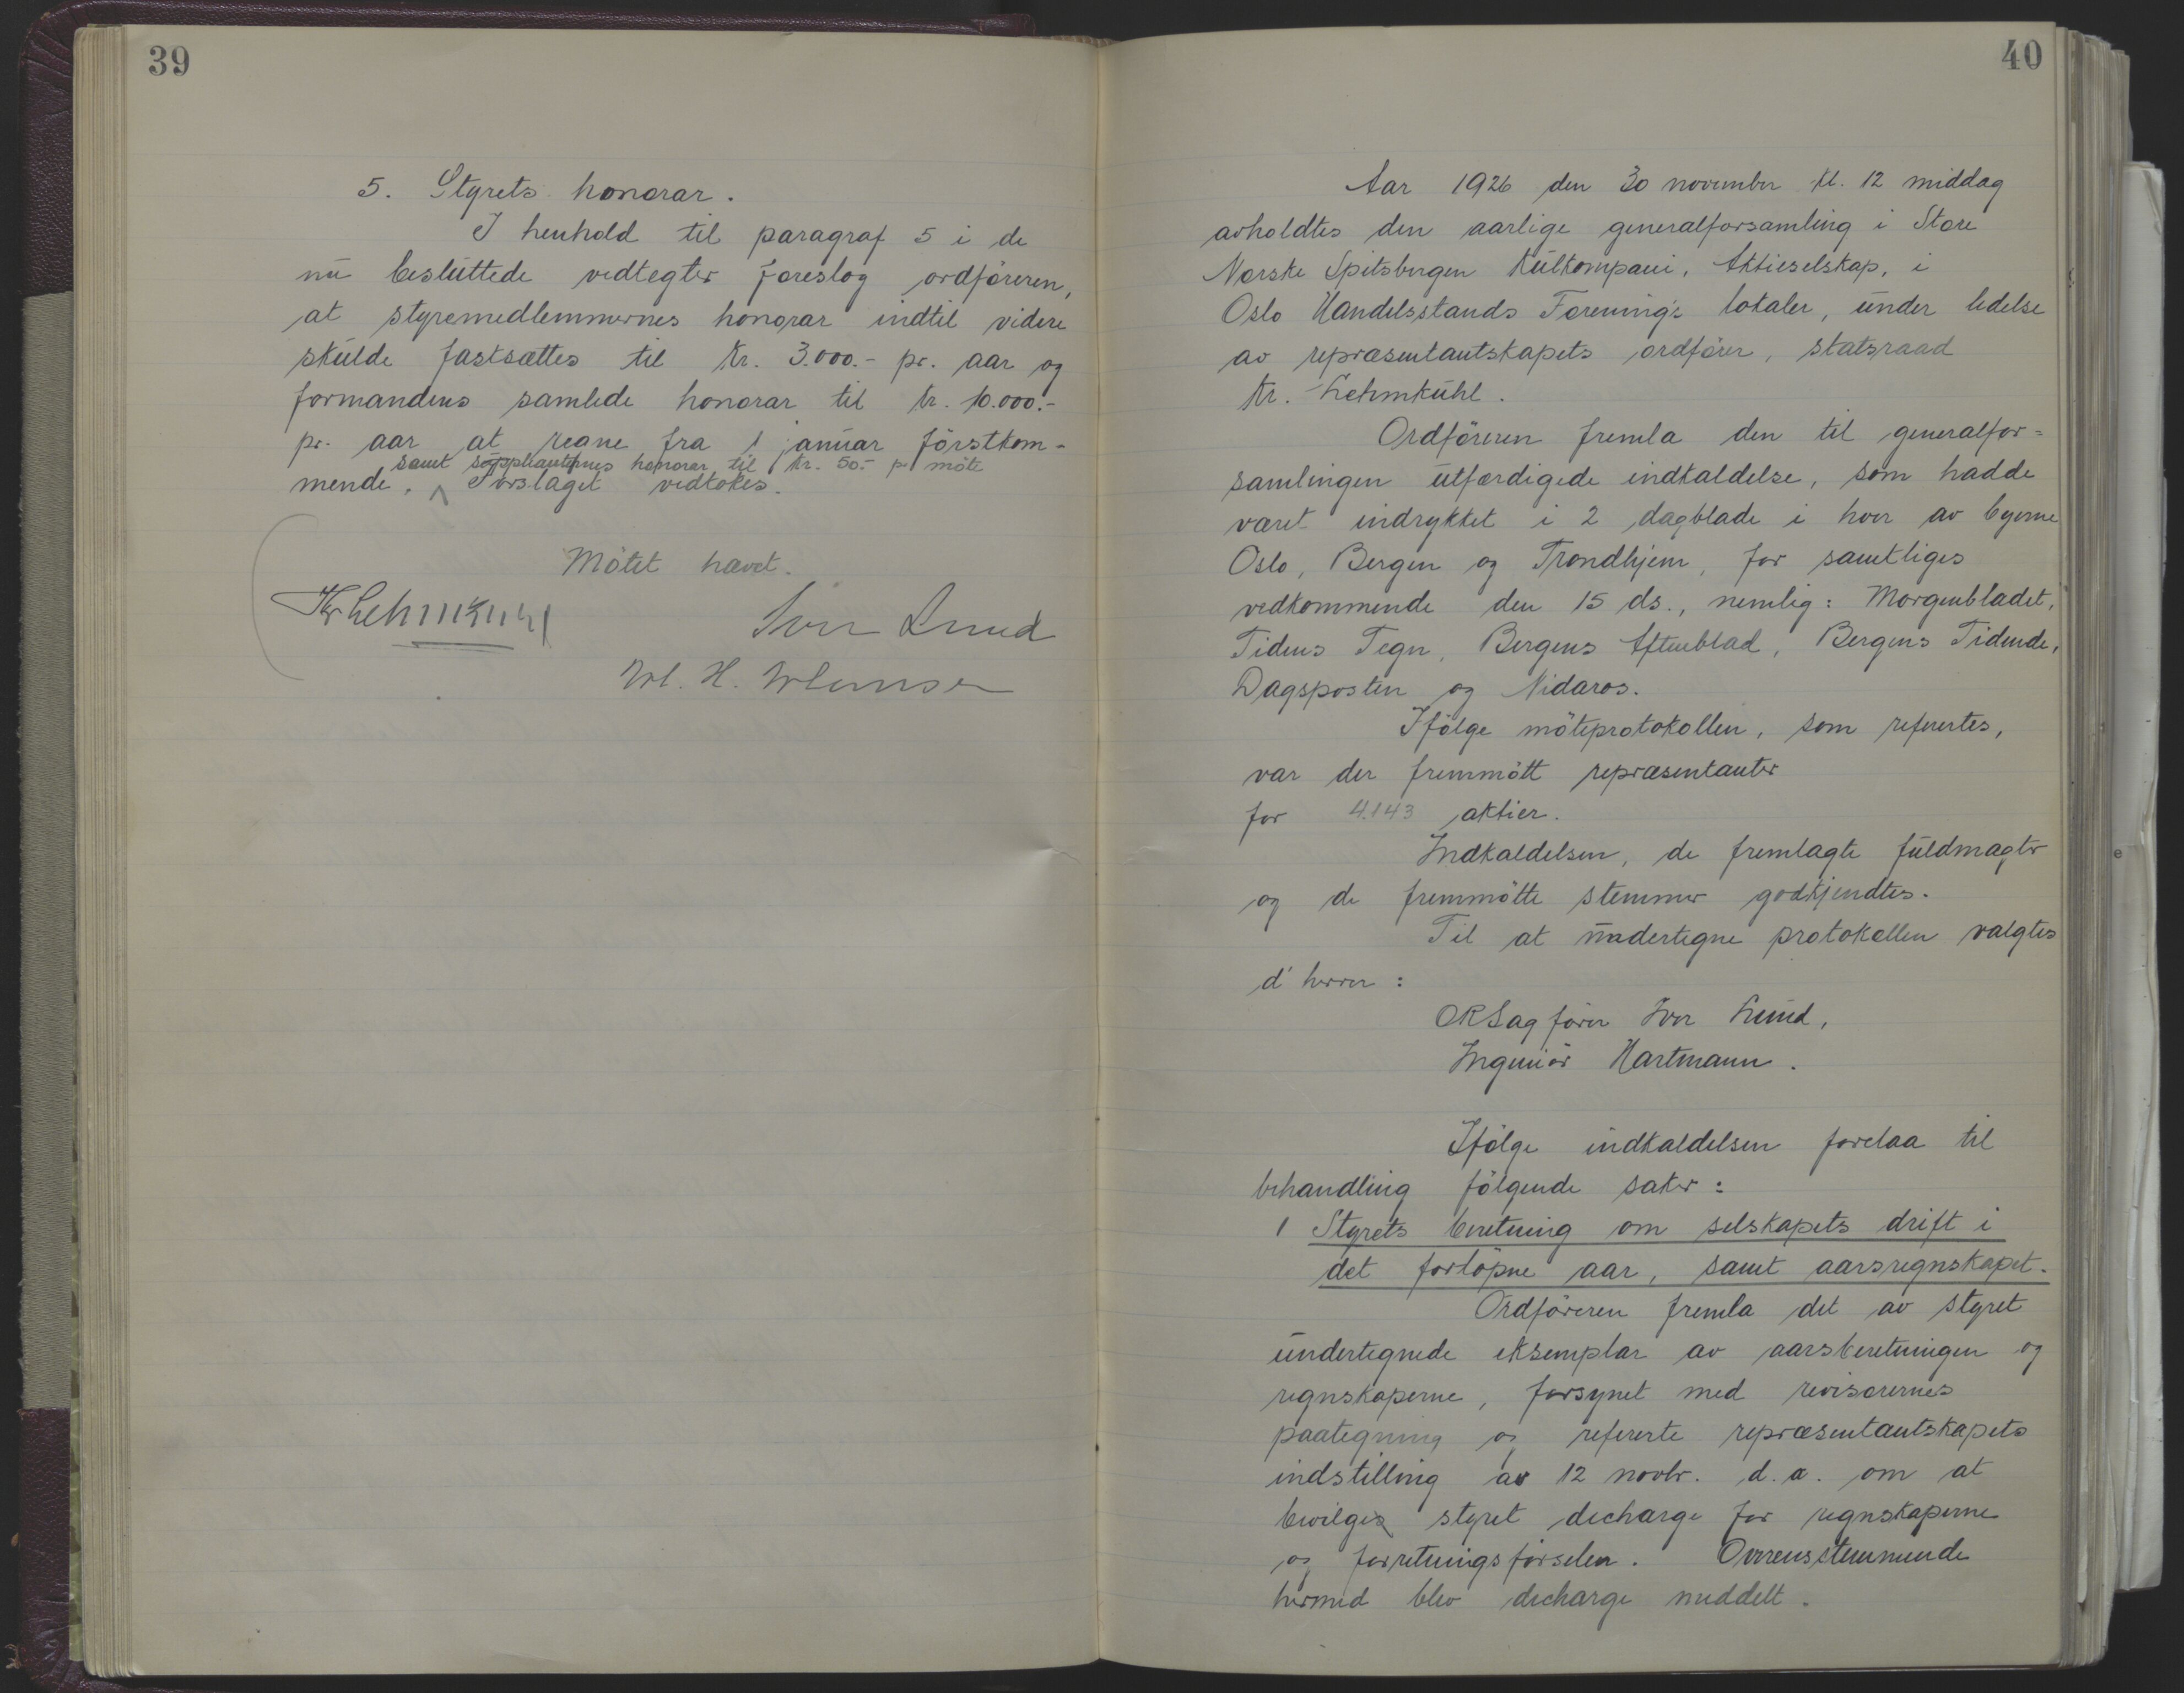 39
5. Styrets honorar.
I henhold til paragraf 5 i de
nu besluttede vedtegter foreslog ordföreren,
at styremedlemmernes honorar indtil videre
skulde fastsættes til Kr. 3.000.- pr. aar og
formandens samlede honorar til kr. 10.000.-
pr. aar at regne fra 1 januar förstkom-
samt suppleanternes honorar til kr. 50.- pr. möte
mende. Forslaget vedtokes.
Mötet hævet.
Kr Lehmkuhl
Iver Lund
40
Aar 1926 den 30 november kl. 12 middag
avholdtes den aarlige generalforsamling i Store
Norske Spitsbergen Kulkompani, Aktieselskap, i
Oslo Handelsstands Forening's lokaler, under ledelse
av repræsentantskapets ordförer, statsraad
Kr. Lehmkuhl.
Ordföreren fremla den til generalfor=
samlingen utfærdigede indkaldelse, som hadde
været indrykket i 2 dagblade i hver av byerne
Oslo, Bergen og Trondhjem, for samtliges
vedkommende den 15 ds., nemlig: Morgenbladet,
Tidens Tegn, Bergens Aftenblad, Bergens Tidende,
Dagsposten og Nidaros.
Ifölge möteprotokollen, som refertes,
var der fremmött repræsentanter
for 4.143 aktier.
Indkaldelsen, de fremlagte fuldmagter
og de fremmötte stemmer godkjendtes.
Til at undertegne protokollen valgtes
d' herrer:
ORSagförer Iver Lund,
Ingeniör Hartmann.
Ifölge indkaldelsen forelaa til
behandling fölgende saker:
1 Styrets beretning om selskapets drift i
det forlöpne aar, samt aarsregnskapet.
Ordföreren fremla det av styret
undertegnede eksemplar av aarsberetningen og
regnskaperne, forsynet med revisorernes
paategning og refererte repræsentantskapets
indstilling av 12 novbr. d.a. om at
bevilges styret decharge for regnskaperne
og forretningsförselen. Overensstemmende
hermed blev decharge meddelt.